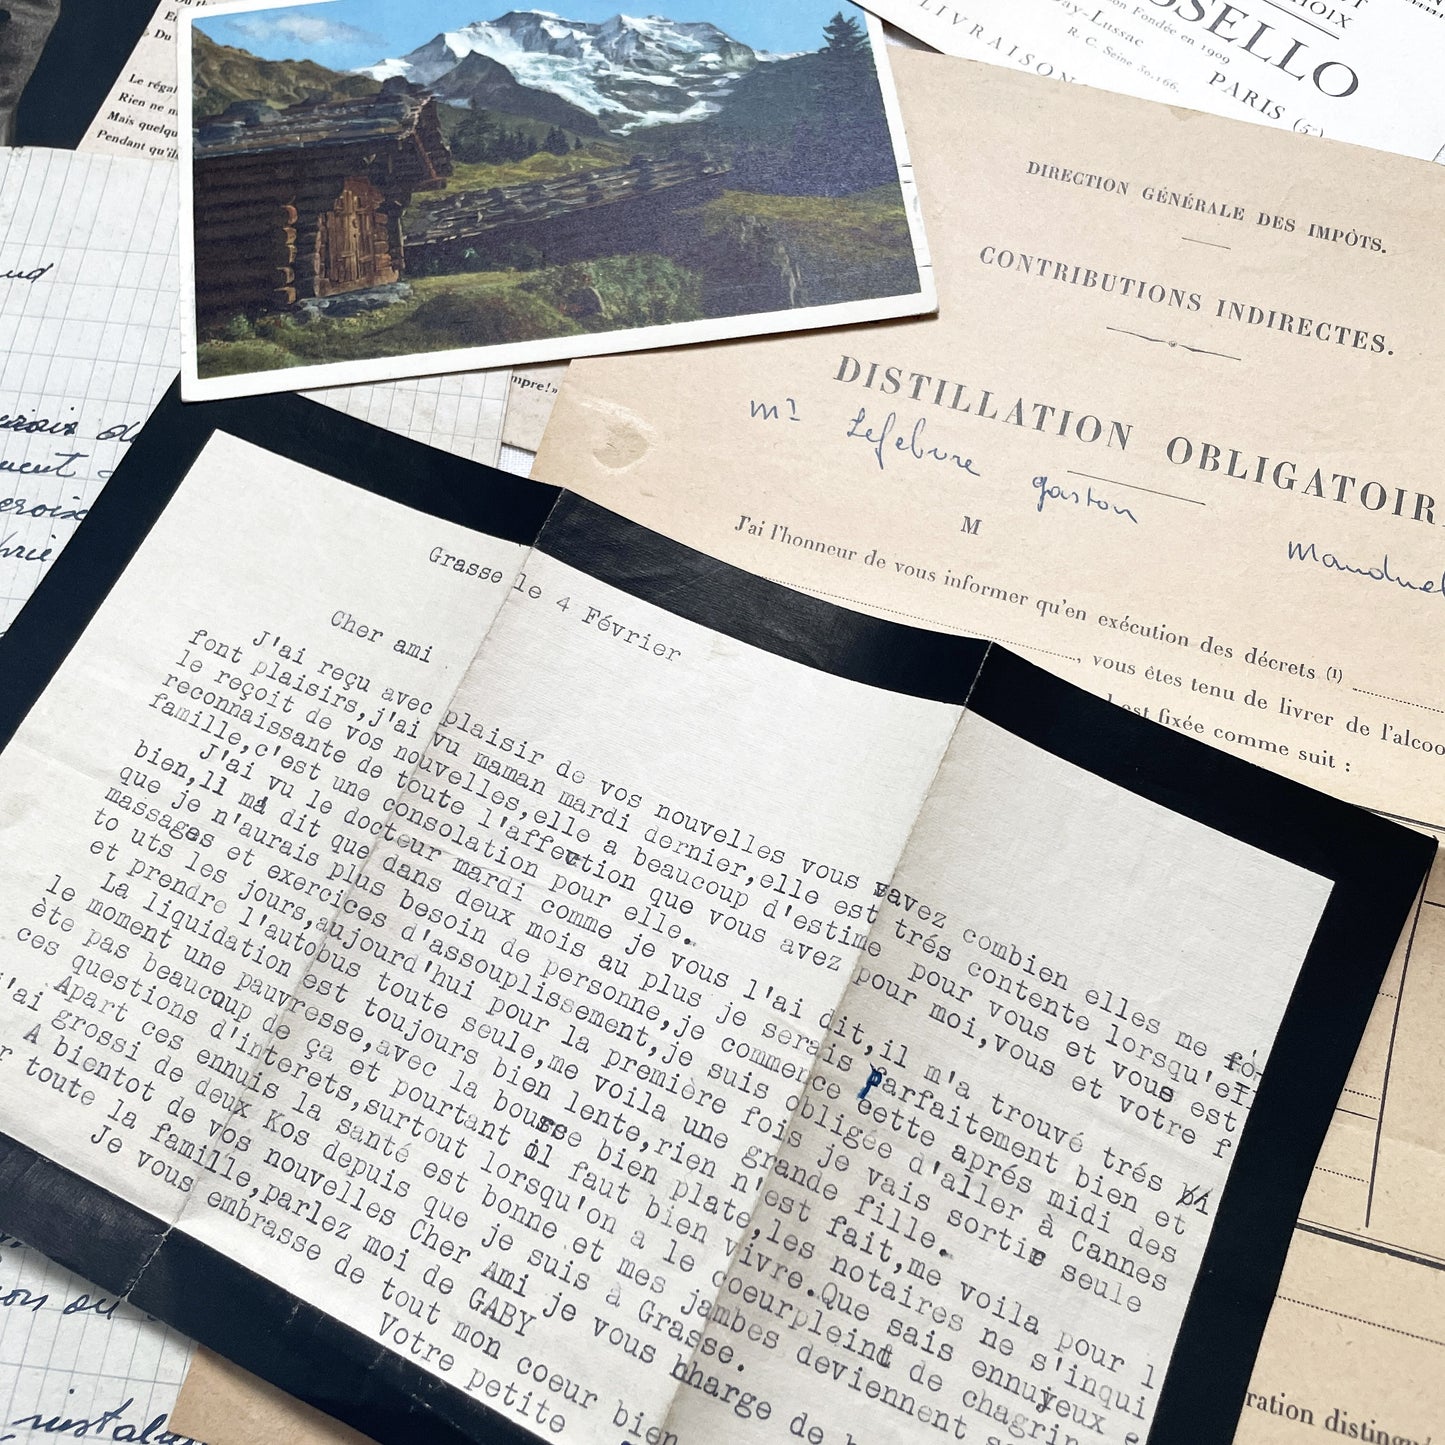 Du
Le régal
Rien ne m
Mais quelqu
Pendant qu'il
HOIX
SELLO
son Fondée en 1909
ay-Lussac
R. C. Seine 30.166.
LIVRAISON
PARIS (5e)
DIRECTION GÉNÉRALE DES IMPÔTS.
CONTRIBUTIONS INDIRECTES.
DISTILLATION OBLIGATOIR
mr Lefebvre gaston
M
Manduel
J'ai l'honneur de vous informer qu'en exécution des décrets (1)
, vous êtes tenu de livrer de l'alcoo
est fixée comme suit :
mpre!»
ration distingu
Grasse le 4 Février
Cher ami
J'ai reçu avec plaisir de vos nouvelles vous savez combien elles me fo-
font plaisirs,j'ai vu maman mardi dernier,elle est trés contente lorsqu'ell
le reçoit de vos nouvelles,elle a beaucoup d'estime pour vous et vous est
reconnaissante de toute l'affection que vous avez pour moi,vous et votre f
famille,c'est une consolation pour elle.
J'ai vu le docteur mardi comme je vous l'ai dit,il m'a trouvé trés bi
bien,il ma dit que dans deux mois au plus je serais parfaitement bien et
que je n'aurais plus besoin de personne,je commence cette aprés midi des
massages et exercices d'assouplissement,je suis obligée d'aller à Cannes
to uts les jours,aujourd'hui pour la première fois je vais sortir seule
et prendre l'autobus toute seule,me voila une grande fille.
La liquidation est toujours bien lente,rien n'est fait,me voila pour l
le moment une pauvresse,avec la bourse bien plate,les notaires ne s'inqui
ète pas beaucoup de ça et pourtant il faut bien vivre.Que sais ennuyeux e
ces questions d'interets,surtout lorsqu'on a le coeurpleint de chagrin
Apart ces ennuis la santé est bonne et mes jambes deviennent s
'ai grossi de deux Kos depuis que je suis à Grasse.
A bientot de vos nouvelles Cher Ami je vous hharge de b
r toute la famille,parlez moi de GABY
Je vous embrasse de tout mon coeur bien
Votre petite